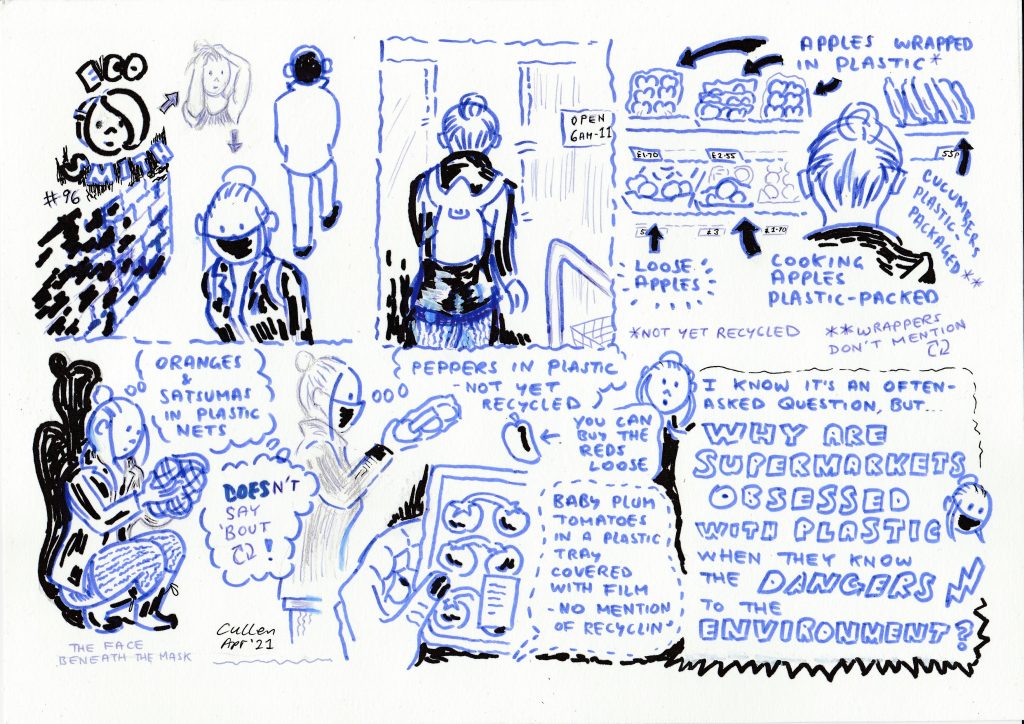 ECO
SMITH
#96
OPEN
6AM-11
APPLES WRAPPED
IN PLASTIC*
£1·70
£2·55
53P
£3
£1·70
LOOSE
APPLES
COOKING
APPLES
PLASTIC-PACKED
CUCUMBERS
PLASTIC-
PACKAGED**
*NOT YET RECYCLED
**WRAPPERS
DON'T MENTION
ORANGES
&
SATSUMAS
IN PLASTIC
NETS
DOESN'T
SAY
'BOUT
!
THE FACE
BENEATH THE MASK
Cullen
Apr '21
PEPPERS IN PLASTIC
-NOT YET
RECYCLED
YOU CAN
BUY THE
REDS
LOOSE
BABY PLUM
TOMATOES
IN A PLASTIC
TRAY
COVERED
WITH FILM
-NO MENTION
OF RECYCLIN'
I KNOW IT'S AN OFTEN-
ASKED QUESTION, BUT...
WHY ARE
SUPERMARKETS
OBSESSED
WITH PLASTIC
WHEN THEY KNOW
THE DANGERS
TO THE
ENVIRONMENT?